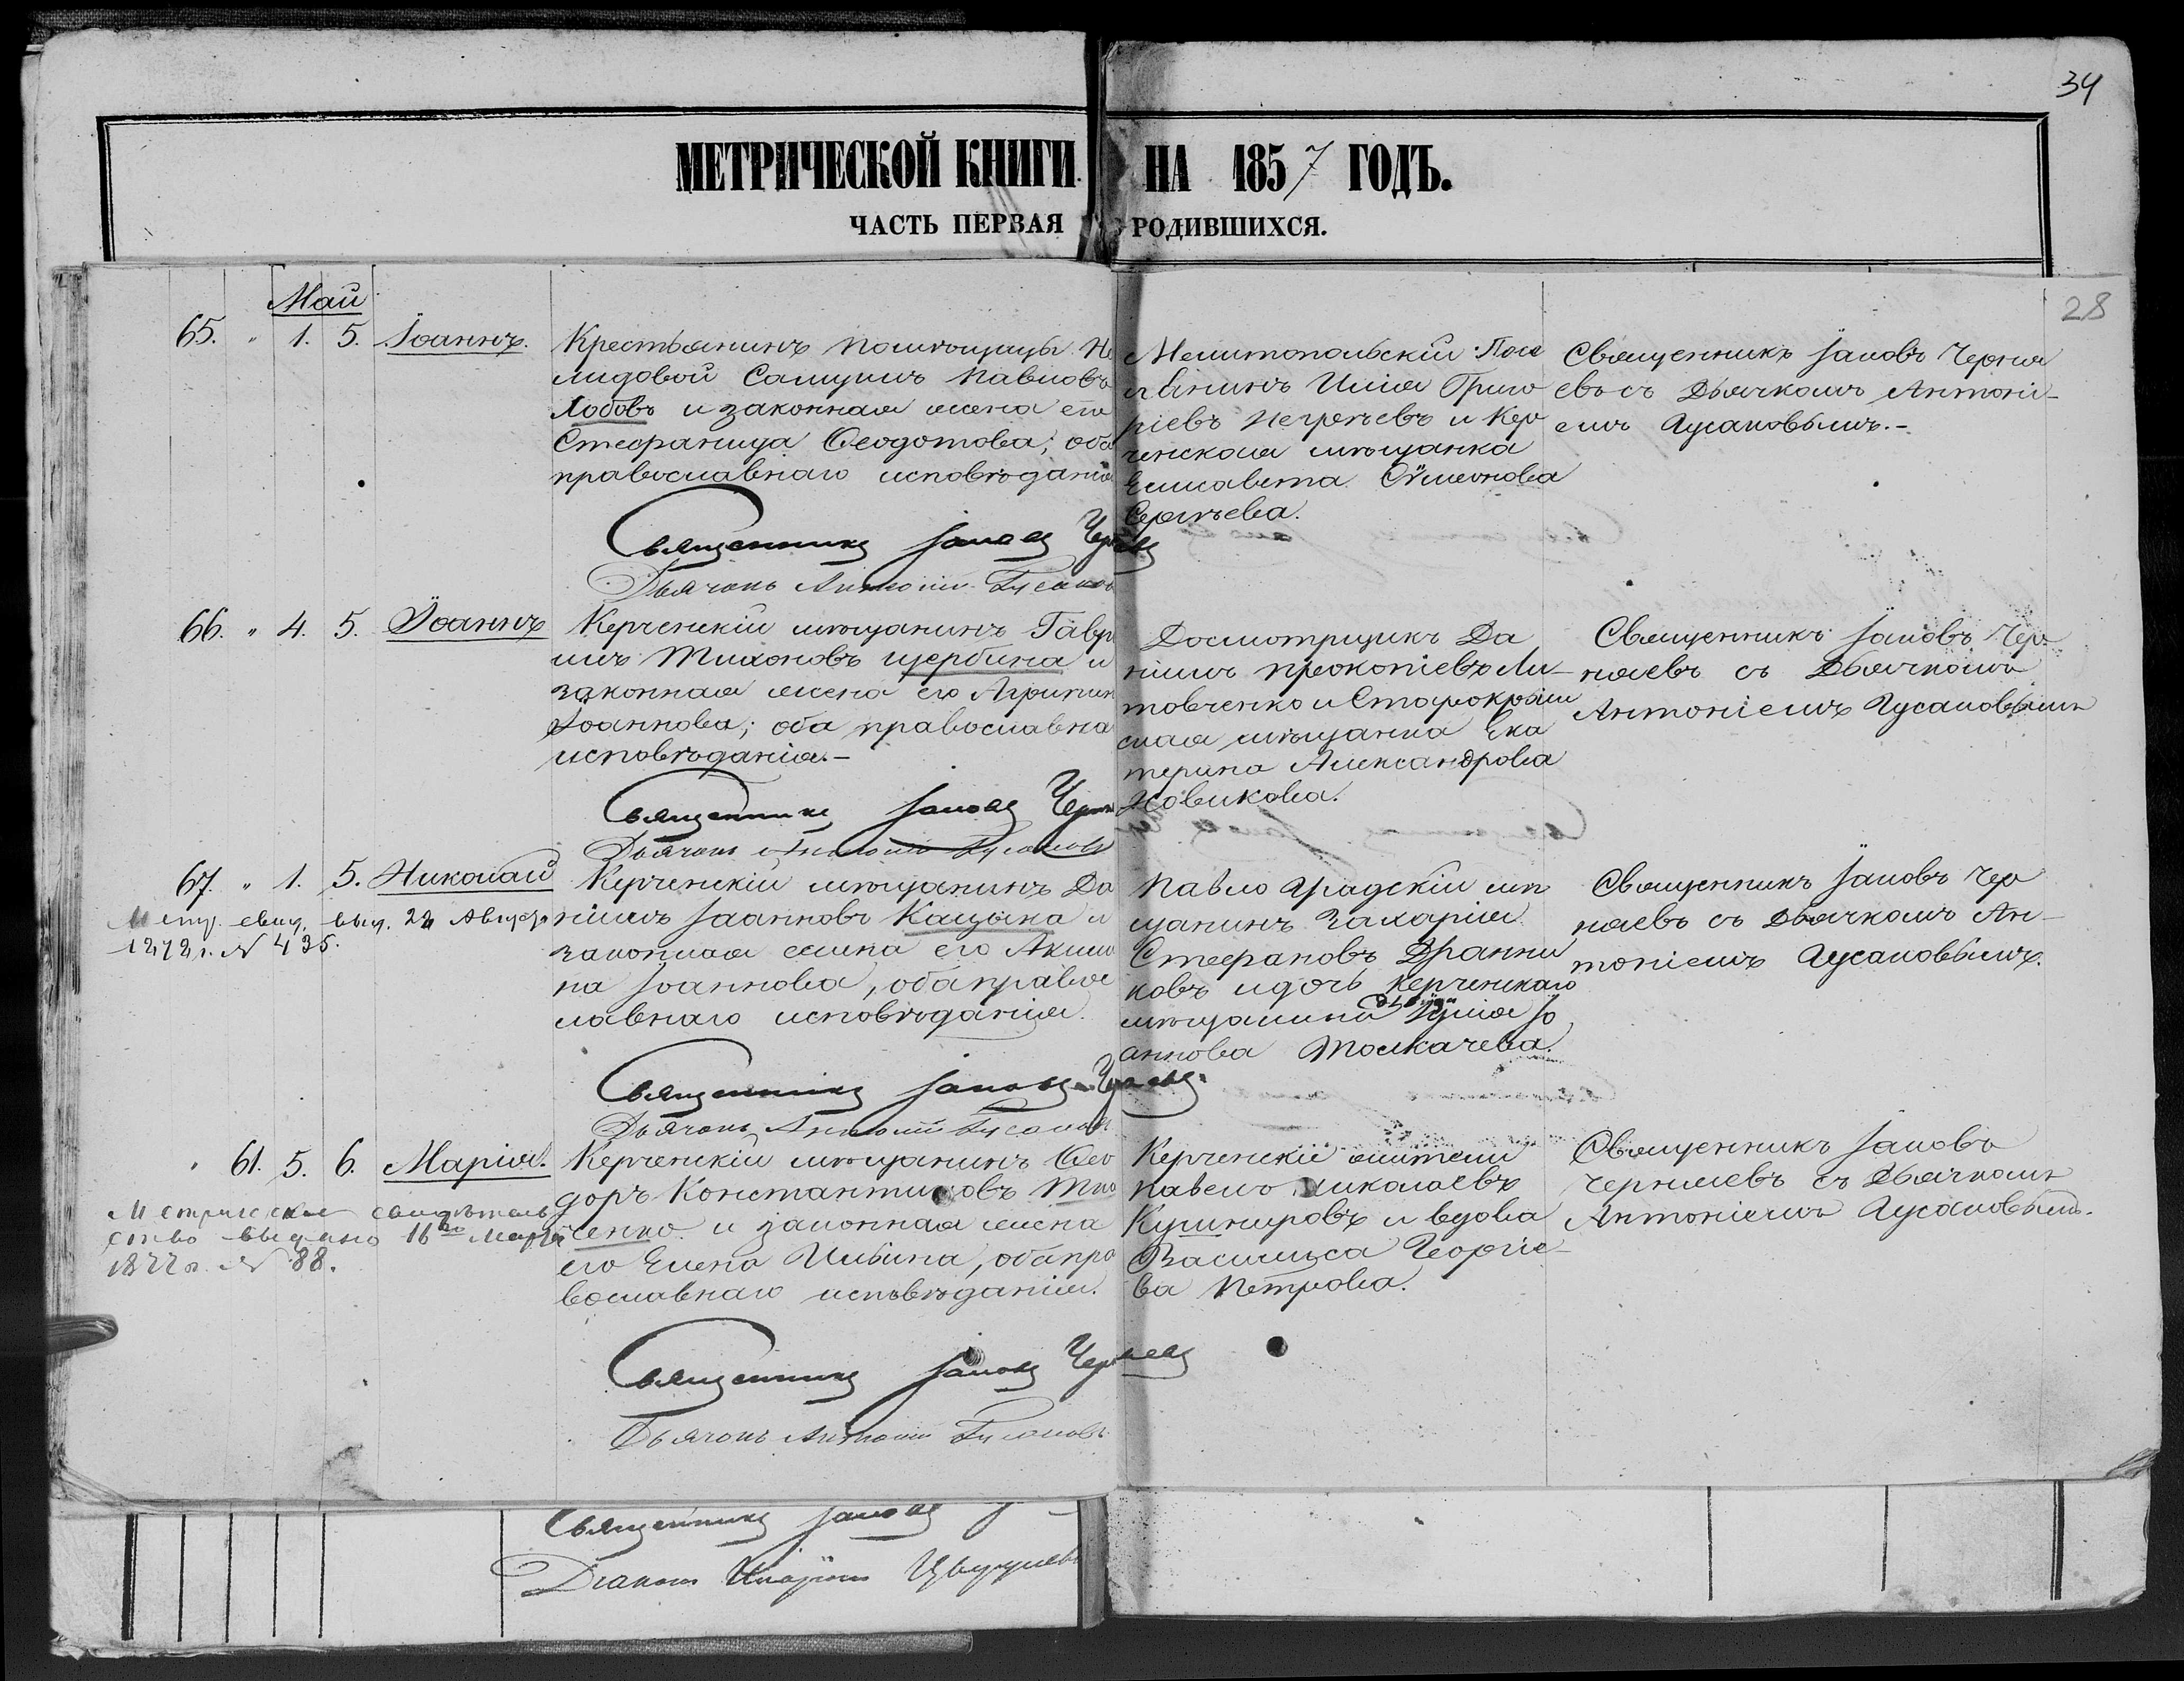 34
МЕТРИЧЕСКОЙ КНИГИ НА 1857 ГОДЪ.
ЧАСТЬ ПЕРВАЯ РОДИВШИХСЯ.
28
Май
65. " 1. 5. Іоаннъ.
Крестьянинъ помѣщицы Не
лидовой Самуилъ Павловъ
Лобовъ и законная жена его
Стефанида Ѳеодотова; оба
православнаго исповѣданія
Мелитопольскій Посе
лянинъ Илія Григо
ріевъ и Кер
ченская мѣщанка
Елисавета Сѵмеонова
Сергѣева.
Священникъ Іаковъ Черня
евъ съ Дьячкомъ Антоні-
емъ Гусаковымъ.-
Священникъ Іаковъ Черняевъ
Дьячокъ Антоній Гусаковъ
66. " 4. 5. Іоаннъ
Керченскій мѣщанинъ Гавр
илъ Тихоновъ Щербина и
законная жена его Агрипин
Іоаннова; оба православна
исповѣданія.-
Досмотрщикъ Да
ніилъ Прокопіевъ Ли-
товченко и Старокрым
ская мѣщанка Ека
терина Александрова
Новикова.
Священникъ Іаковъ Чер-
няевъ съ Дьячкомъ
Антоніемъ Гусаковымъ
Священникъ Іаковъ Черня
Дьячокъ Антоній Гусаковъ
67. " 1. 5. Николай
Метр. свид. выд. 22 Августа
1872 г. № 435.
Керченскій мѣщанинъ Да
ніилъ Іоанновъ Кацына и
законная жена его Акили
на Іоаннова, оба правос
лавнаго исповѣданія.
Павло Градскій мѣ
щанинъ Захарія
Стефановъ Дранни
ковъ и дочь Керченскаго
мѣщанина Іо
аннова Толкачева.
Священникъ Іаковъ Чер
няевъ съ Дьячкомъ Ан-
тоніемъ Гусаковымъ.
Священникъ Іаковъ Черняевъ
Дьячокъ Антоній Гусаковъ
" 61. 5. 6. Марія.
Метрическое свидѣтель
ство выдано 16го Марта
1877 г. № 88.
Керченскій мѣщанинъ Ѳео
доръ Константиновъ Тка
ченко и законная жена
его Елена Ильина, оба пра
вославнаго исповѣданія.
Керченскіе жители
Павелъ Николаевъ
Кушнировъ и вдова
Василиса Георгіе-
ва Петрова.
Священникъ Іаковъ
Черняевъ съ Дьячкомъ
Антоніемъ Гусаковымъ.
Священникъ Іаковъ Черняевъ
Дьячокъ Антоній Гусаковъ
Священникъ Іаковъ
Діаконъ